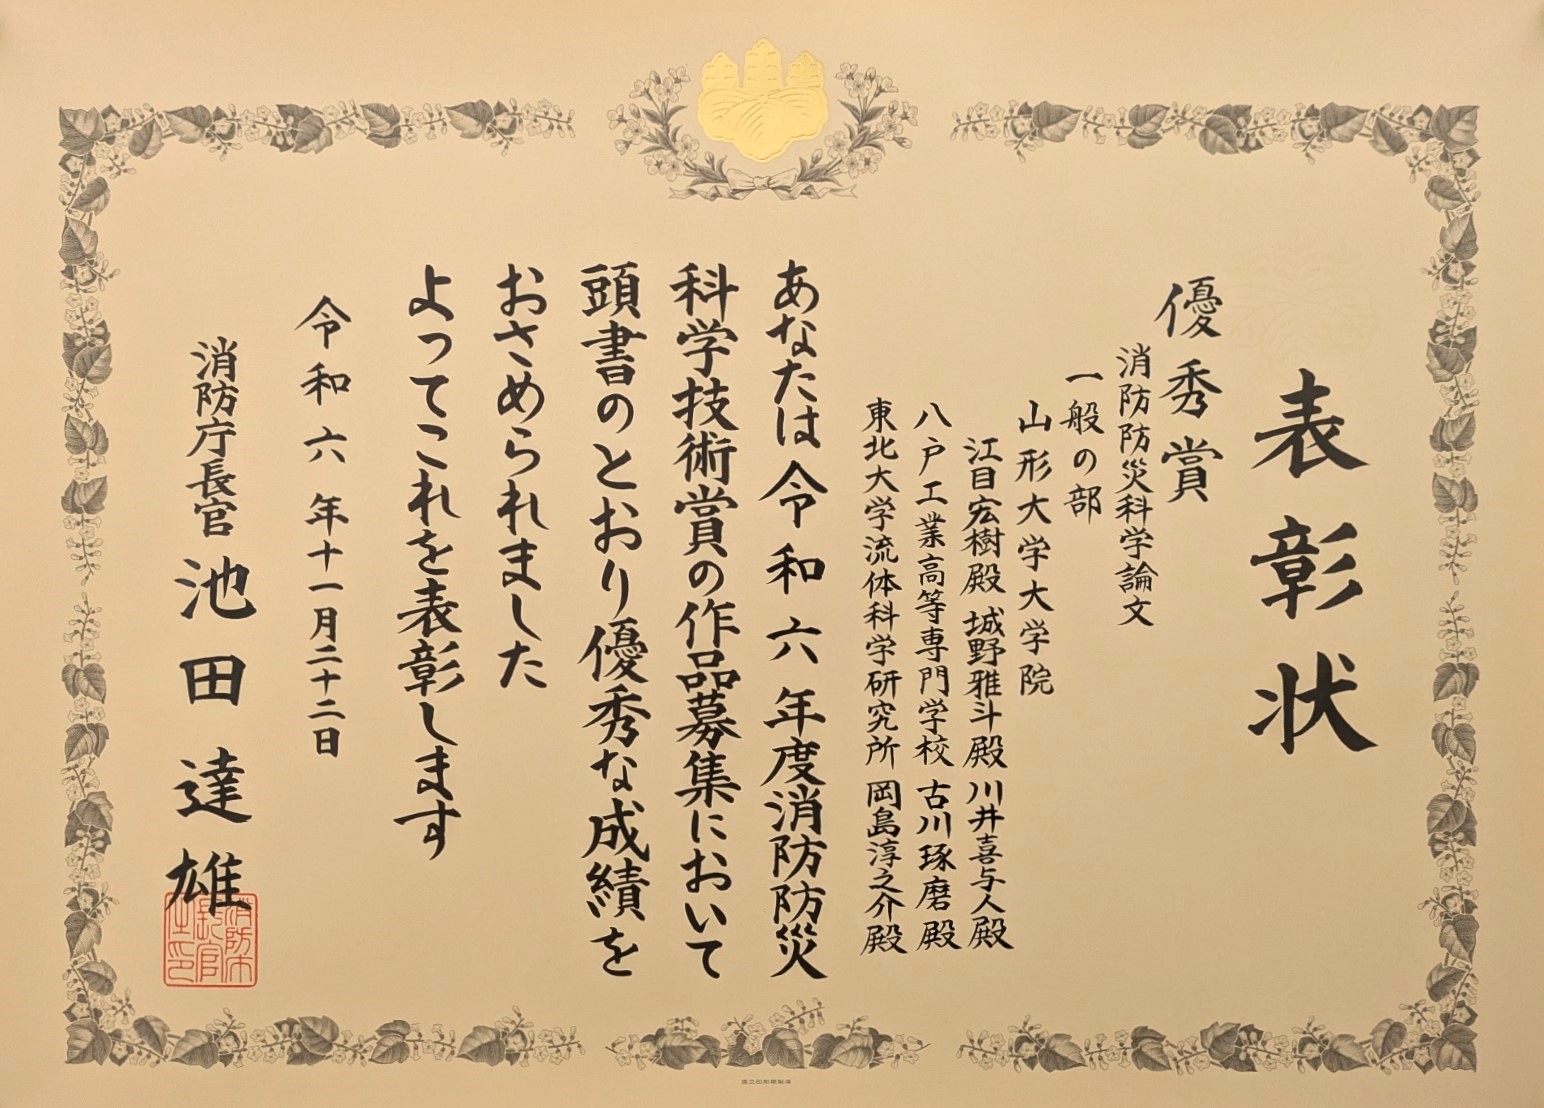 表彰状
優秀賞
消防防災科学論文
一般の部
山形大学大学院
江目宏樹殿 城野雅斗殿 川井喜与人殿
八戸工業高等専門学校 古川琢磨殿
東北大学流体科学研究所 岡島淳之介殿
あなたは令和六年度消防防災
科学技術賞の作品募集において
頭書のとおり優秀な成績を
おさめられました
よってこれを表彰します
令和六年十一月二十二日
消防庁長官 池田達雄
消防庁長官之印
国立印刷局製造